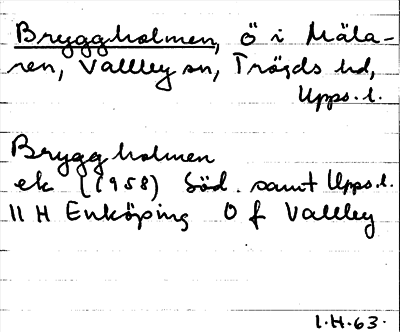 Bryggholmen, ö i Mäla-
ren, Vallby sn, Trögds hd,
Upps. l.
Bryggholmen
ek (1958) Söd. samt Upps. l.
11 H Enköping O f Vallby
I. H. 63.